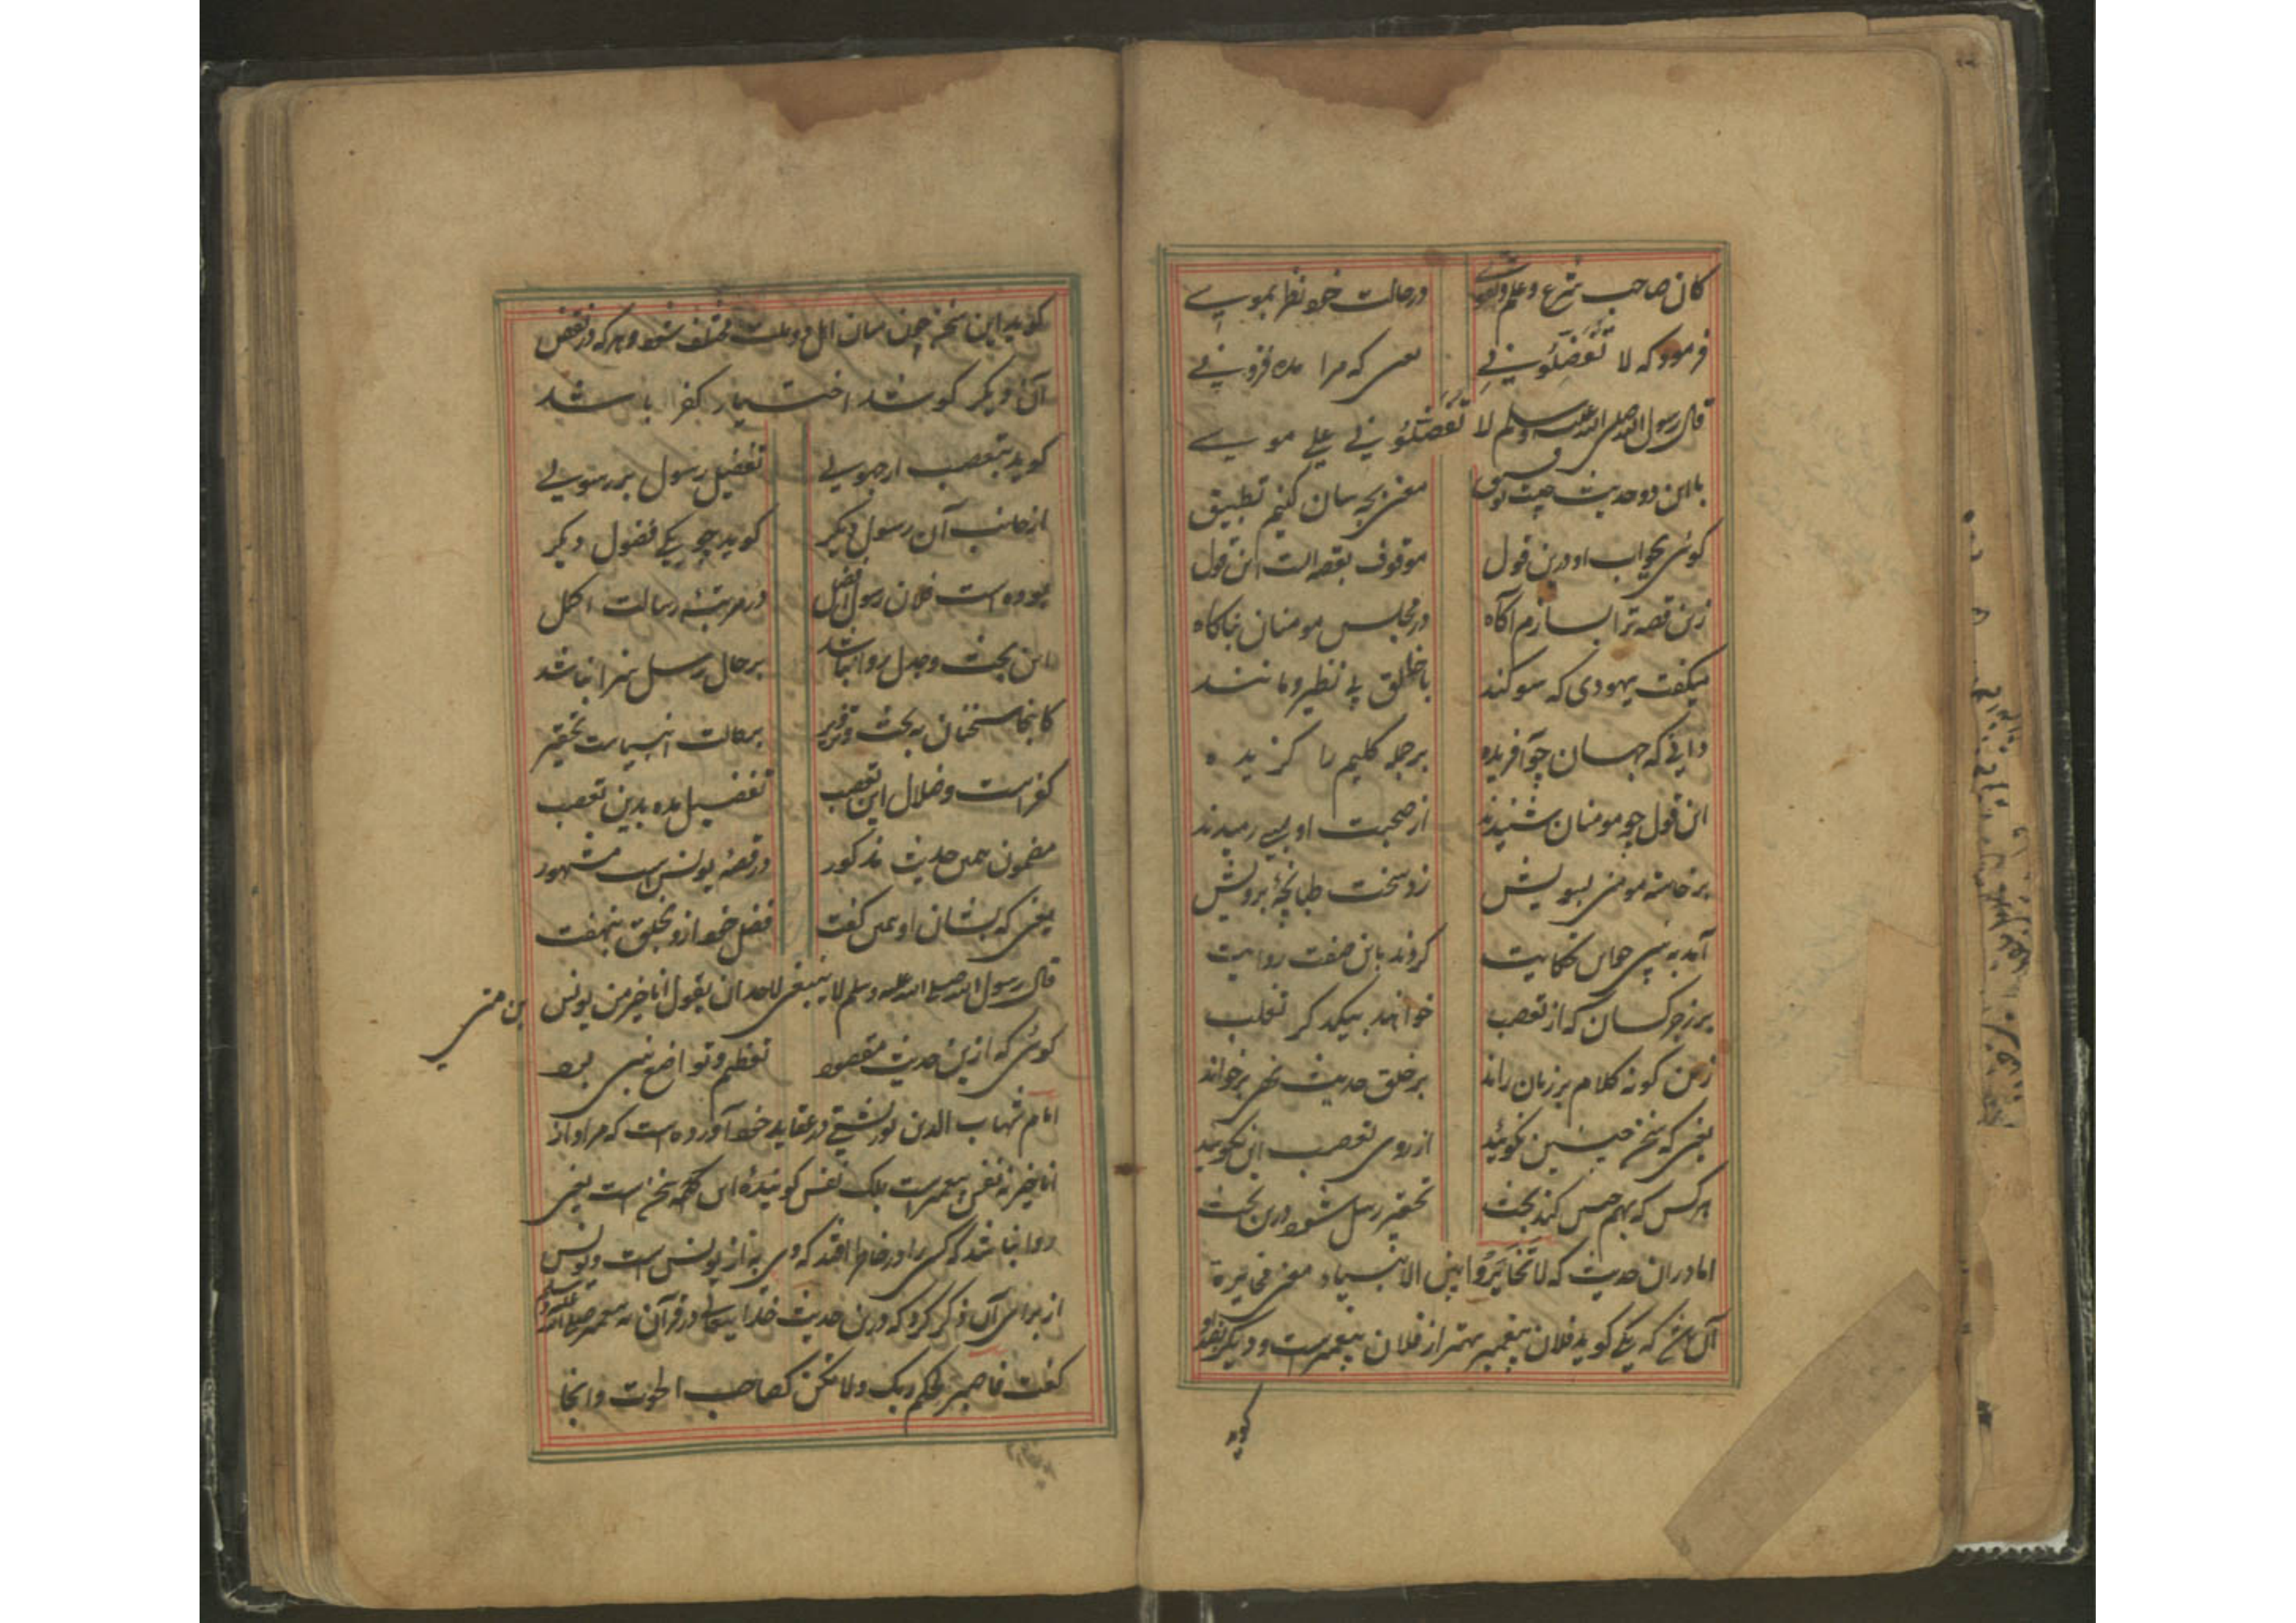 کان صاحب شرع و علم و تقوی در حالت خود نظر بموسی
فرمود که لا تُفَضِّلُونِی یعنی که مرا مده فزونی
قال رسول الله صلی الله علیه وسلم لا تُفَضِّلُونِی علی موسی
با این دو حدیث چیست توفیق معنی بچه سان کنیم تطبیق
گوئی بجواب او درین قول موقوف بقصه است این قول
زین قصه ترا بسازم آگاه در مجلس مومنان بناگاه
میگفت یهودی که سوگند با خالق بی نظیر و مانند
دانی که جهان چو آفریده بر جمله کلیم را گزیده
این قول چو مومنان شنیدند از صحبت او بسی رمیدند
برخاسته مومنی بسویش زد سخت طپانچهٔ برویش
آمد به نبی همان حکایت کردند باین صفت روایت
بر زجر کسان که از تعصب خواهند بیکدگر تغلب
زین گونه کلام بر زبان راند بر خلق حدیث نهی برخواند
یعنی که سخن چنین نگوئید از روی تعصب این نگوئید
هر کس که بهم چنین کند بحث تحقیر رسل شود درین بحث
اما در آن حدیث که لا تُخَایِرُوا بین الانبیاء معنی مخایرة
آن باشد که یکی گوید فلان پیغمبر بهتر از فلان پیغمبرست و دیگر
گوید
گوید این سخن چون میان اهل دو ملت مختلف شود و هر که در نقض
آن دیگر کوشد اختیار کفر باشد
گوید بتعصب ار جهولی تفضیل رسول بر رسولی
از جانب آن رسول دیگر گوید چو یکی فضول دیگر
بوده است فلان رسول افضل در مرتبهٔ رسالت اکمل
این بحث و جدل روا نباشد بر حال رسل سزا نباشد
کانجا سخنان به بحث و تزویر بر حالت انبیاست تحقیر
کفر است و ضلال این تعصب تفضیل مده بدین تعصب
مضمون همین حدیث مذکور در قصهٔ یونس است مشهور
یعنی که بشان او همین گفت فضل خود ازو بخلق بنهفت
قال رسول الله صلی الله علیه وسلم لا ینبغی لاحد ان یقول انا خیر من یونس بن متی
گوئی که ازین حدیث مقصود تعظیم و تواضع نبی بود
امام شهاب الدین تورپشتی در عقاید خود آورده است که مراد از
انا خیر نه نفس پیغمبرست بلکه نفس گویندهٔ این سخن است یعنی
روا نباشد که کسی را در خاطر افتد که وی به از یونس است و یونس
از برای آن ذکر کرد که درین حدیث خدایتعالی در قرآن به پیغمبر صلی الله علیه وسلم
گفت فاصبر لحکم ربک ولا تکن کصاحب الحوت و اینجا